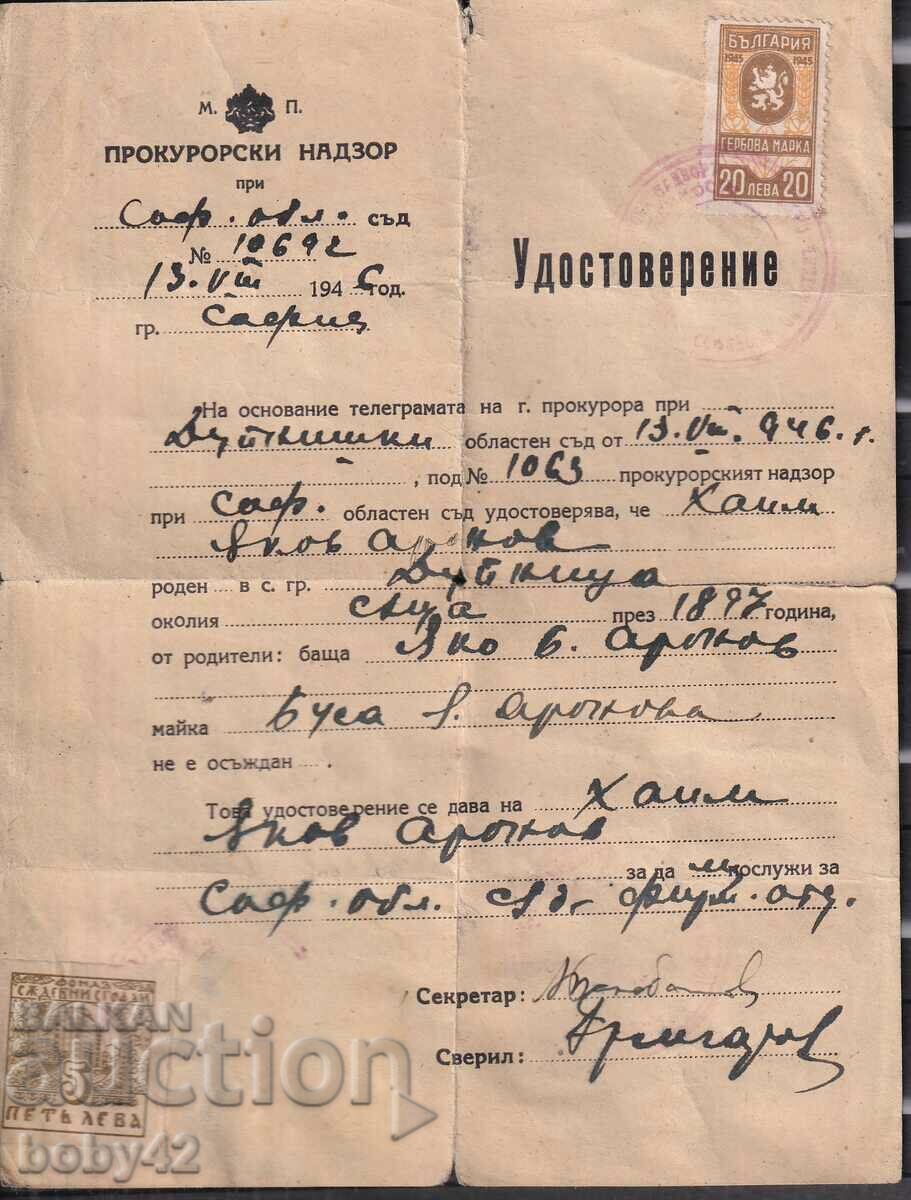 М. П.
ПРОКУРОРСКИ НАДЗОР
при
Соф. обл. съд
№ 10692
13.VIII 1946 год.
гр. София
БЪЛГАРИЯ
1945 1945
ГЕРБОВА МАРКА
20 ЛЕВА 20
Удостоверение
На основание телеграмата на г. прокурора при
Дупнишки областен съд от 13.VIII.946.г.
, под № 1063 прокурорският надзор
при Соф. областен съд удостоверява, че Хаим
Яков Арынов
роден в с. гр. Дупница
околия през 1897 година,
от родители: баща Яко Б. Арынов
майка Буса Я. Арынова
не е осъждан .
Това удостоверение се дава на Хаим
Яков Арынов
за да му послужи за
Соф. обл. съд - фирм. отд.
Секретар:
Сверил:
ФОНДЪ
СѪДЕБНИ СГРАДИ
5
ПЕТЬ ЛЕВА
BALKAN
auction
boby42